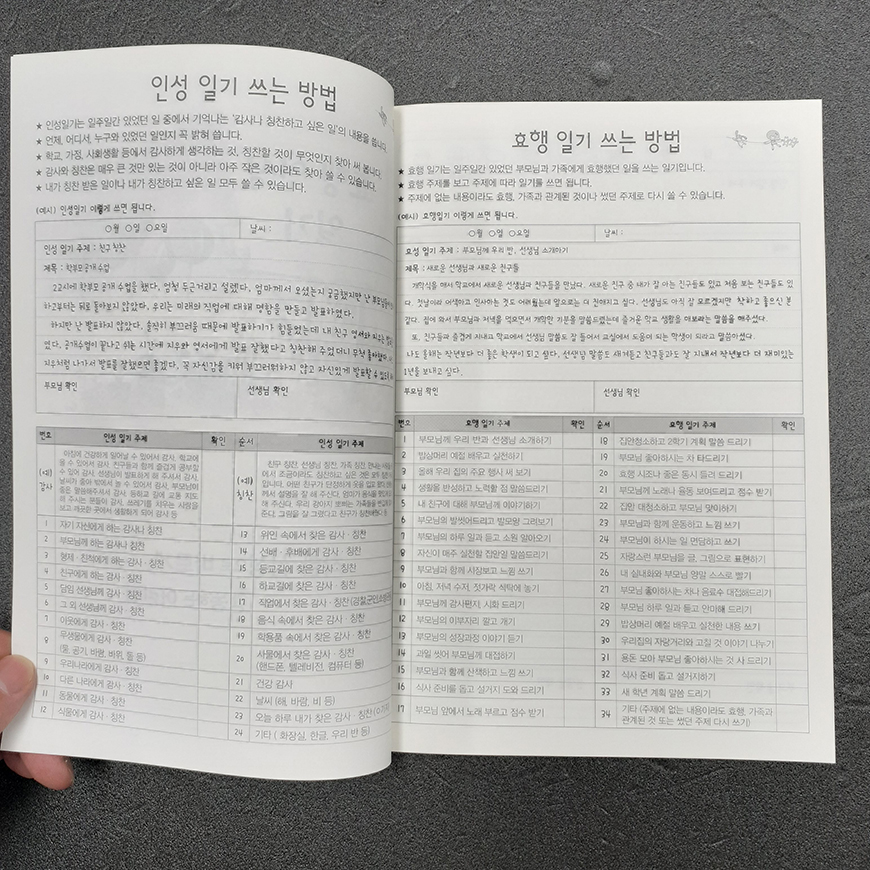 인성 일기 쓰는 방법
★ 인성일기는 일주일간 있었던 일 중에서 기억나는 '감사나 칭찬하고 싶은 일'의 내용을 씁니다.
★ 언제, 어디서, 누구와 있었던 일인지 꼭 밝혀 씁니다.
★ 학교, 가정, 사회생활 등에서 감사하게 생각하는 것, 칭찬할 것이 무엇인지 찾아 써 봅니다.
★ 감사와 칭찬은 매우 큰 것만 있는 것이 아니라 아주 작은 것이라도 찾아 쓸 수 있습니다.
★ 내가 칭찬 받은 일이나 내가 칭찬하고 싶은 일 모두 쓸 수 있습니다.
(예시) 인성일기 이렇게 쓰면 됩니다.
○월 ○일 ○요일 날씨 :
인성 일기 주제 : 친구 칭찬
제목 : 학부모 공개 수업
22시에 학부모 공개 수업을 했다. 엄청 두근거리고 설렜다. 엄마께서 오셨는지 궁금했지만 난 부모님
하고부터는 뒤로 돌아보지 않았다. 우리는 미래의 직업에 대해 명함을 만들고 발표하였다.
하지만 난 발표하지 않았다. 솔직히 부끄러움 때문에 발표하기가 힘들었는데 내 친구 영서와 지우는
였다. 공개수업이 끝나고 쉬는 시간에 지우와 영서에게 발표 잘했다고 칭찬해 주었더니 무척 좋아했다.
지우처럼 나가서 발표를 잘했으면 좋겠다. 꼭 자신감을 키워 부끄러워하지 않고 자신있게 발표할 수
부모님 확인 선생님 확인
번호 인성 일기 주제 확인 순서 인성 일기 주제
(예) 감사
아침에 건강하게 일어날 수 있어서 감사, 학교에
올 수 있어서 감사, 친구들과 함께 즐겁게 공부할
수 있어 감사, 선생님이 발표하게 해 주셔서 감사,
날씨가 좋아 밖에서 놀 수 있어서 감사, 부모님께
좋은 말씀해주셔서 감사, 등하교 길에 교통 지도
해 주시는 분들이 감사, 쓰레기를 치우는 사람을
보고 깨끗한 곳에서 생활하게 되어 감사 등
(예) 칭찬
친구 칭찬, 선생님 칭찬, 가족 칭찬,
에서 조금이라도 칭찬하고 싶은 것은 모두
입니다. 어떤 친구가 단정하게 옷을 입고
에서 설명을 잘 해 주신다. 엄마가 음식을
해 주신다. 우리 강아지 뽀삐는 가족들을
준다. 그림을 잘 그렸다고 친구가 칭찬해줬다
1 자기 자신에게 하는 감사나 칭찬
2 부모님께 하는 감사나 칭찬
3 형제·친척에게 하는 감사·칭찬
4 친구에게 하는 감사·칭찬
5 담임 선생님께 감사·칭찬
6 그 외 선생님께 감사·칭찬
7 이웃에게 감사·칭찬
8 무생물에게 감사·칭찬
(돌, 공기, 바람, 바위, 물 등)
9 우리나라에게 감사·칭찬
10 다른 나라에게 감사·칭찬
11 동물에게 감사·칭찬
12 식물에게 감사·칭찬
13 위인 속에서 찾은 감사·칭찬
14 선배·후배에게 감사·칭찬
15 등교길에 찾은 감사·칭찬
16 하교길에 찾은 감사·칭찬
17 직업에서 찾은 감사·칭찬(경찰,군인,소방관
18 음식 속에서 찾은 감사·칭찬
19 학용품 속에서 찾은 감사·칭찬
20 사물에서 찾은 감사·칭찬
(핸드폰, 텔레비전, 컴퓨터 등)
21 건강 감사
22 날씨 (해, 바람, 비 등)
23 오늘 하루 내가 찾은 감사·칭찬
24 기타 ( 화장실, 한글, 우리 반 등)
효행 일기 쓰는 방법
★ 효행 일기는 일주일간 있었던 부모님과 가족에게 효행했던 일을 쓰는 일기입니다.
★ 효행 주제를 보고 주제에 따라 일기를 쓰면 됩니다.
★ 주제에 없는 내용이라도 효행, 가족과 관계된 것이나 썼던 주제로 다시 쓸 수 있습니다.
(예시) 효행일기 이렇게 쓰면 됩니다.
○월 ○일 ○요일 날씨 :
효성 일기 주제 : 부모님께 우리 반, 선생님 소개하기
제목 : 새로운 선생님과 새로운 친구들
개학식을 해서 학교에서 새로운 선생님과 친구들을 만났다. 새로운 친구 중 내가 잘 아는 친구들도 있고 처음 보는 친구들도 있
다. 첫날이라 어색하고 인사하는 것도 어려웠는데 앞으로는 더 친해지고 싶다. 선생님도 아직 잘 모르겠지만 착하고 좋으신 분
같다. 집에 와서 부모님과 저녁을 먹으면서 개학한 기분을 말씀드렸는데 즐거운 학교 생활을 해보라는 말씀을 해주셨다.
또, 친구들과 즐겁게 지내고 학교에서 선생님 말씀도 잘 들어서 교실에서 도움이 되는 학생이 되라고 말씀하셨다.
나도 올해는 작년보다 더 좋은 학생이 되고 싶다. 선생님 말씀도 새겨듣고 친구들과도 잘 지내서 작년보다 더 재미있는
1년을 보내고 싶다.
부모님 확인 선생님 확인
번호 효행 일기 주제 확인 순서 효행 일기 주제 확인
1 부모님께 우리 반과 선생님 소개하기
2 밥상머리 예절 배우고 실천하기
3 올해 우리 집의 주요 행사 써 보기
4 생활을 반성하고 노력할 점 말씀드리기
5 내 친구에 대해 부모님께 이야기하기
6 부모님의 발씻어드리고 발모양 그려보기
7 부모님의 하루 일과 듣고 소원 알아오기
8 자신이 매주 실천할 집안일 말씀드리기
9 부모님과 함께 시장보고 느낌 쓰기
10 아침, 저녁 수저, 젓가락 식탁에 놓기
11 부모님께 감사편지, 시화 드리기
12 부모님의 이부자리 깔고 개기
13 부모님의 성장과정 이야기 듣기
14 과일 씻어 부모님께 대접하기
15 부모님과 함께 산책하고 느낌 쓰기
16 식사 준비를 돕고 설거지 도와 드리기
17 부모님 앞에서 노래 부르고 점수 받기
18 집안청소하고 2학기 계획 말씀 드리기
19 부모님 좋아하시는 차 타드리기
20 효행 시조나 좋은 동시 들려 드리기
21 부모님께 노래나 율동 보여드리고 점수 받기
22 집안 대청소하고 부모님 맞이하기
23 부모님과 함께 운동하고 느낌 쓰기
24 부모님이 하시는 일 면담하고 쓰기
25 자랑스런 부모님을 글, 그림으로 표현하기
26 내 실내화와 부모님 양말 스스로 빨기
27 부모님 좋아하시는 차나 음료수 대접해드리기
28 부모님 하루 일과 듣고 안마해 드리기
29 밥상머리 예절 배우고 실천한 내용 쓰기
30 우리집의 자랑거리와 고칠 것 이야기 나누기
31 용돈 모아 부모님 좋아하시는 것 사 드리기
32 식사 준비 돕고 설거지하기
33 새 학년 계획 말씀 드리기
34 기타 (주제에 없는 내용이라도 효행, 가족과
관계된 것 또는 썼던 주제 다시 쓰기)